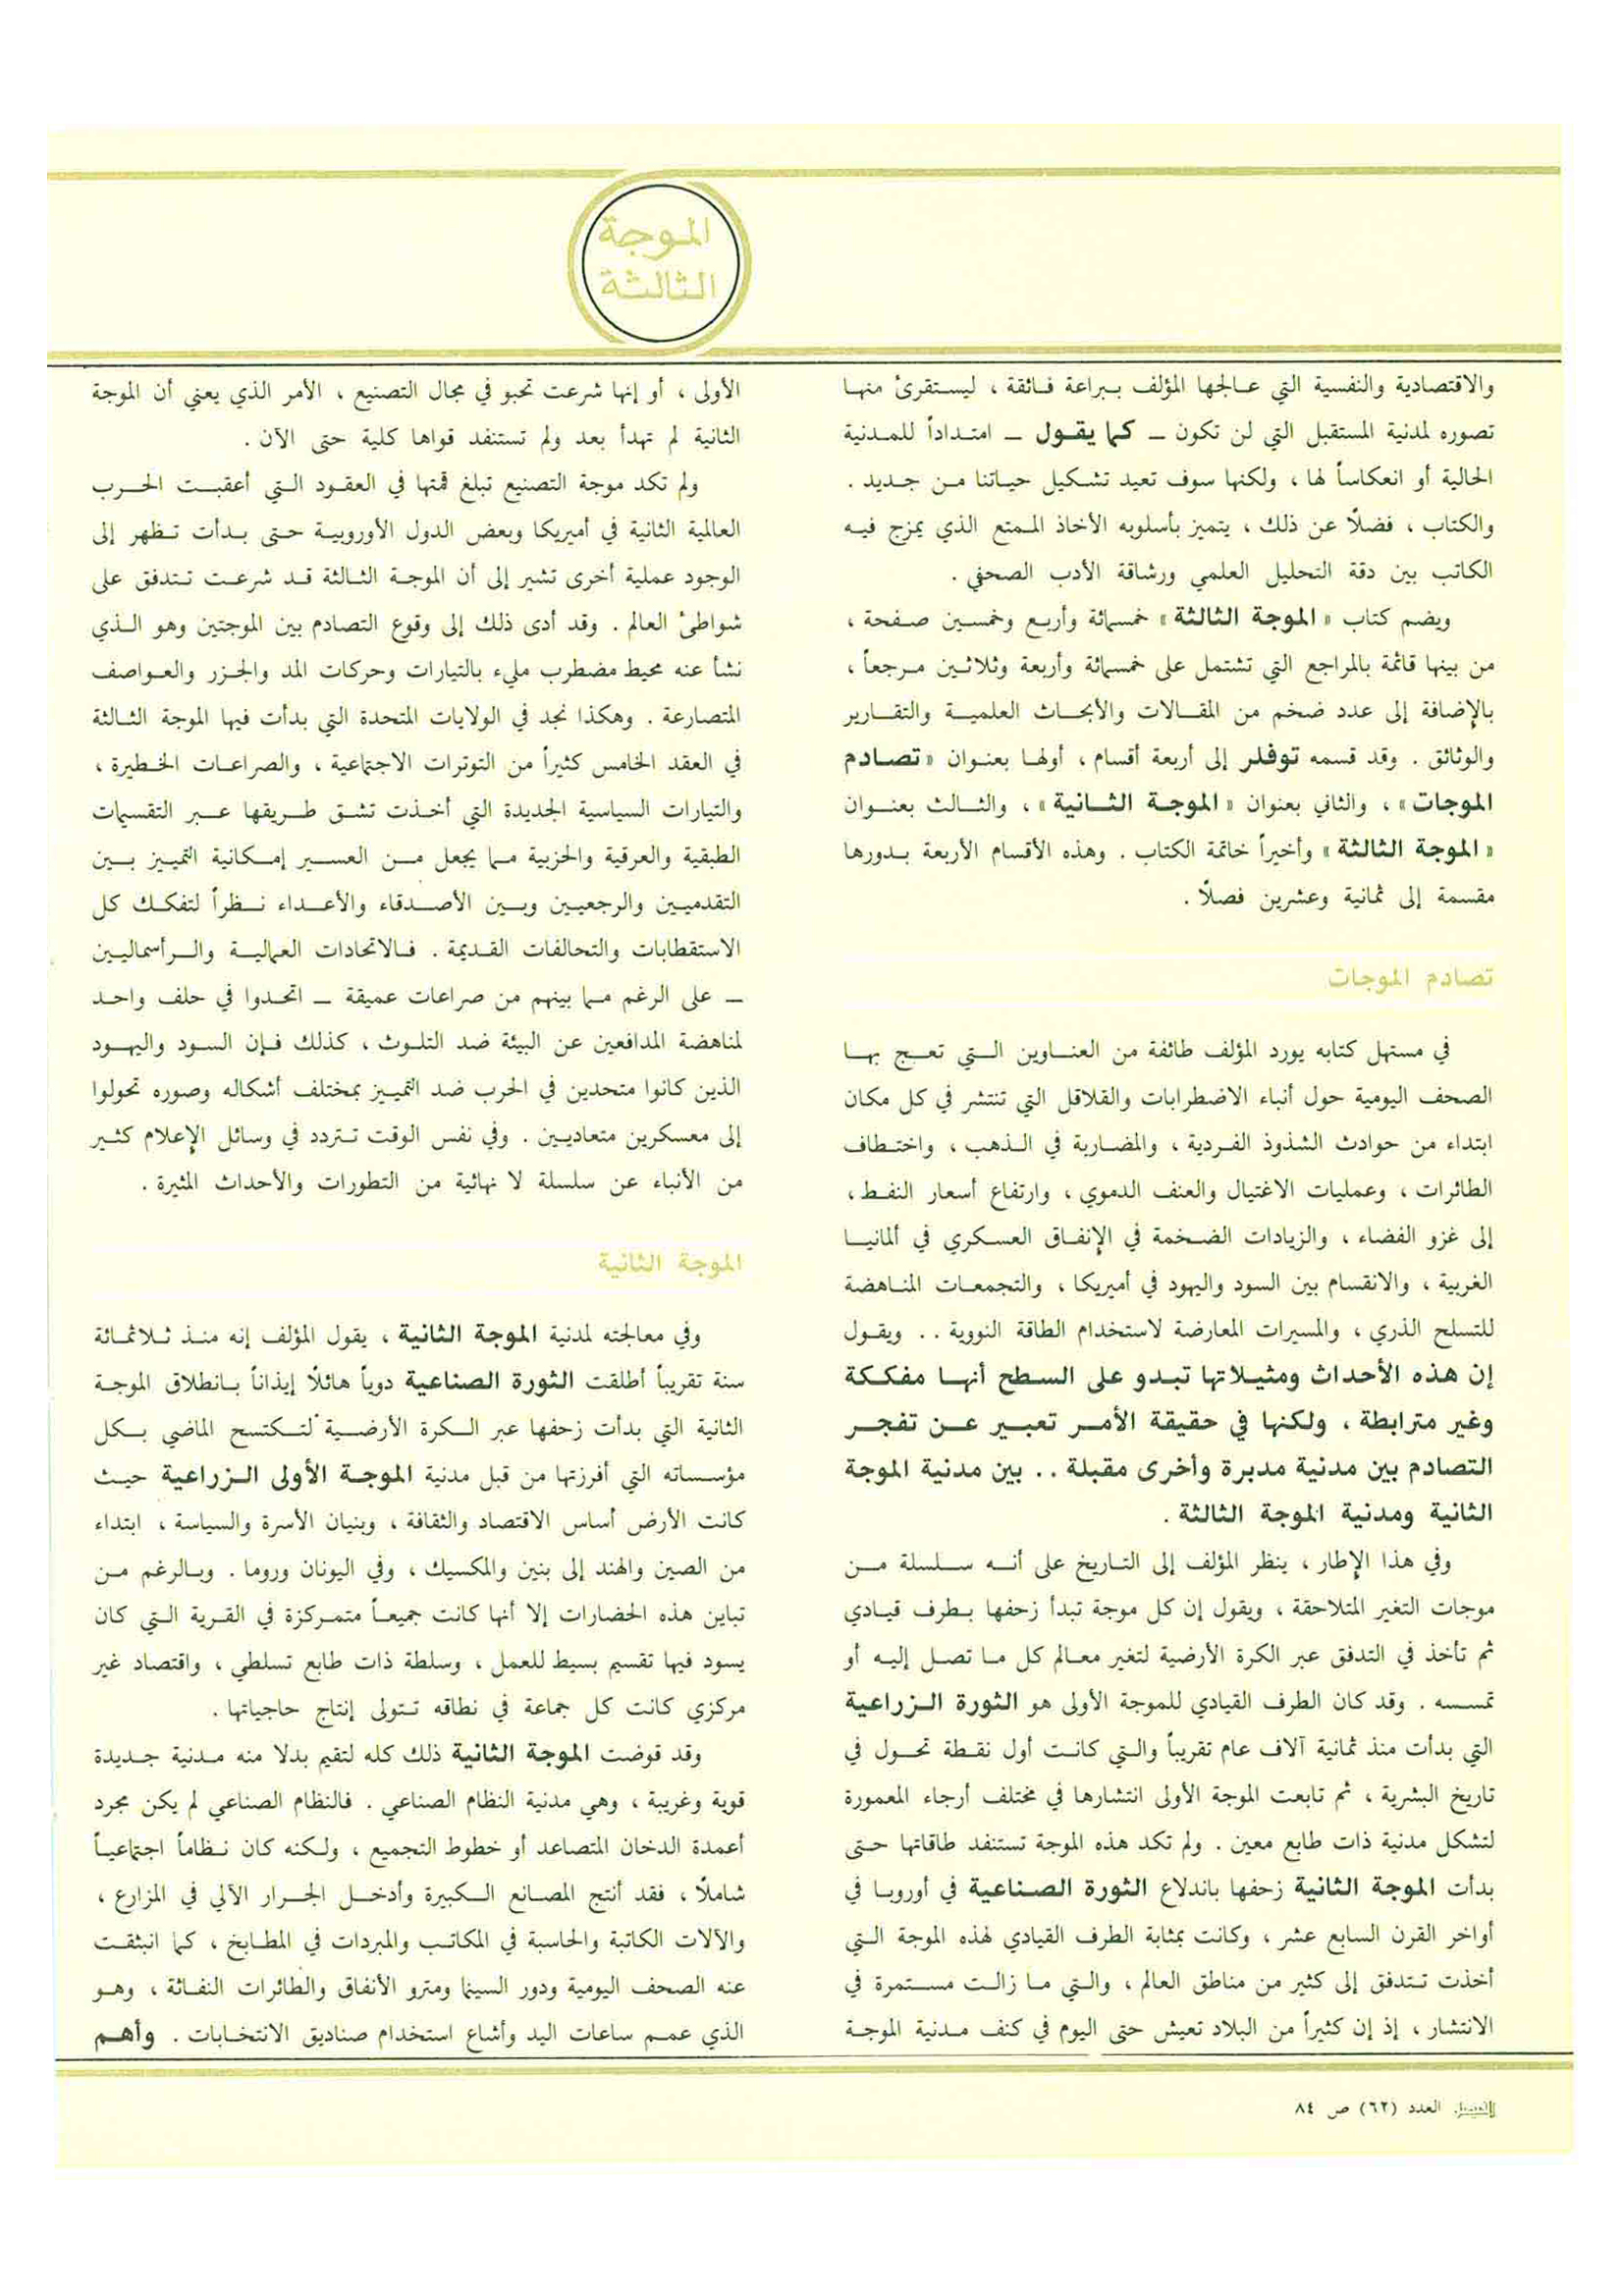 الموجة
الثالثة
والاقتصادية والنفسية التي عالجها المؤلف ببراعة فائقة ، ليستقرئ منها
تصوره لمدنية المستقبل التي لن تكون ـ كما يقول ـ امتداداً للمدنية
الحالية أو انعكاساً لها ، ولكنها سوف تعيد تشكيل حياتنا من جديد .
والكتاب ، فضلاً عن ذلك ، يتميز بأسلوبه الأخاذ الممتع الذي يمزج فيه
الكاتب بين دقة التحليل العلمي ورشاقة الأدب الصحفي .
ويضم كتاب « الموجة الثالثة » خمسمائة وأربع وخمسين صفحة ،
من بينها قائمة بالمراجع التي تشتمل على خمسمائة وأربعة وثلاثين مرجعاً ،
بالإضافة إلى عدد ضخم من المقالات والأبحاث العلمية والتقارير
والوثائق . وقد قسمه توفلر إلى أربعة أقسام ، أولها بعنوان « تصادم
الموجات » ، والثاني بعنوان « الموجة الثانية » ، والثالث بعنوان
« الموجة الثالثة » وأخيراً خاتمة الكتاب . وهذه الأقسام الأربعة بدورها
مقسمة إلى ثمانية وعشرين فصلاً .
تصادم الموجات
في مستهل كتابه يورد المؤلف طائفة من العناوين التي تعج بها
الصحف اليومية حول أنباء الاضطرابات والقلاقل التي تنتشر في كل مكان
ابتداء من حوادث الشذوذ الفردية ، والمضاربة في الذهب ، واختطاف
الطائرات ، وعمليات الاغتيال والعنف الدموي ، وارتفاع أسعار النفط ،
إلى غزو الفضاء ، والزيادات الضخمة في الإنفاق العسكري في ألمانيا
الغربية ، والانقسام بين السود واليهود في أميريكا ، والتجمعات المناهضة
للتسلح الذري ، والمسيرات المعارضة لاستخدام الطاقة النووية . . ويقول
إن هذه الأحداث ومثيلاتها تبدو على السطح أنها مفككة
وغير مترابطة ، ولكنها في حقيقة الأمر تعبير عن تفجر
التصادم بين مدنية مدبرة وأخرى مقبلة . . بين مدنية الموجة
الثانية ومدنية الموجة الثالثة .
وفي هذا الإطار ، ينظر المؤلف إلى التاريخ على أنه سلسلة من
موجات التغير المتلاحقة ، ويقول إن كل موجة تبدأ زحفها بطرف قيادي
ثم تأخذ في التدفق عبر الكرة الأرضية لتغير معالم كل ما تصل إليه أو
تمسسه . وقد كان الطرف القيادي للموجة الأولى هو الثورة الزراعية
التي بدأت منذ ثمانية آلاف عام تقريباً والتي كانت أول نقطة تحول في
تاريخ البشرية ، ثم تابعت الموجة الأولى انتشارها في مختلف أرجاء المعمورة
لتشكل مدنية ذات طابع معين . ولم تكد هذه الموجة تستنفد طاقاتها حتى
بدأت الموجة الثانية زحفها باندلاع الثورة الصناعية في أوروبا في
أواخر القرن السابع عشر ، وكانت بمثابة الطرف القيادي لهذه الموجة التي
أخذت تتدفق إلى كثير من مناطق العالم ، والتي ما زالت مستمرة في
الانتشار ، إذ إن كثيراً من البلاد تعيش حتى اليوم في كنف مدنية الموجة
الأولى ، أو إنها شرعت تحبو في مجال التصنيع ، الأمر الذي يعني أن الموجة
الثانية لم تهدأ بعد ولم تستنفد قواها كلية حتى الآن .
ولم تكد موجة التصنيع تبلغ قمتها في العقود التي أعقبت الحرب
العالمية الثانية في أميريكا وبعض الدول الأوروبية حتى بدأت تظهر إلى
الوجود عملية أخرى تشير إلى أن الموجة الثالثة قد شرعت تتدفق على
شواطئ العالم . وقد أدى ذلك إلى وقوع التصادم بين الموجتين وهو الذي
نشأ عنه محيط مضطرب مليء بالتيارات وحركات المد والجزر والعواصف
المتصارعة . وهكذا نجد في الولايات المتحدة التي بدأت فيها الموجة الثالثة
في العقد الخامس كثيراً من التوترات الاجتماعية ، والصراعات الخطيرة ،
والتيارات السياسية الجديدة التي أخذت تشق طريقها عبر التقسيمات
الطبقية والعرقية والحزبية مما يجعل من العسير إمكانية التمييز بين
التقدميين والرجعيين وبين الأصدقاء والأعداء نظراً لتفكك كل
الاستقطابات والتحالفات القديمة . فالاتحادات العمالية والرأسماليين
ـ على الرغم مما بينهم من صراعات عميقة ـ اتحدوا في حلف واحد
لمناهضة المدافعين عن البيئة ضد التلوث ، كذلك فإن السود واليهود
الذين كانوا متحدين في الحرب ضد التمييز بمختلف أشكاله وصوره تحولوا
إلى معسكرين متعاديين . وفي نفس الوقت تتردد في وسائل الإعلام كثير
من الأنباء عن سلسلة لا نهائية من التطورات والأحداث المثيرة .
الموجة الثانية
وفي معالجته لمدنية الموجة الثانية ، يقول المؤلف إنه منذ ثلاثمائة
سنة تقريباً أطلقت الثورة الصناعية دوياً هائلاً إيذاناً بانطلاق الموجة
الثانية التي بدأت زحفها عبر الكرة الأرضية لتكتسح الماضي بكل
مؤسساته التي أفرزتها من قبل مدنية الموجة الأولى الزراعية حيث
كانت الأرض أساس الاقتصاد والثقافة ، وبنيان الأسرة والسياسة ، ابتداء
من الصين والهند إلى بنين والمكسيك ، وفي اليونان وروما . وبالرغم من
تباين هذه الحضارات إلا أنها كانت جميعاً متمركزة في القرية التي كان
يسود فيها تقسيم بسيط للعمل ، وسلطة ذات طابع تسلطي ، واقتصاد غير
مركزي كانت كل جماعة في نطاقه تتولى إنتاج حاجياتها .
وقد قوضت الموجة الثانية ذلك كله لتقيم بدلا منه مدنية جديدة
قوية وغريبة ، وهي مدنية النظام الصناعي . فالنظام الصناعي لم يكن مجرد
أعمدة الدخان المتصاعد أو خطوط التجميع ، ولكنه كان نظاماً اجتماعياً
شاملاً ، فقد أنتج المصانع الكبيرة وأدخل الجرار الآلي في المزارع ،
والآلات الكاتبة والحاسبة في المكاتب والمبردات في المطابخ ، كما انبثقت
عنه الصحف اليومية ودور السينما ومترو الأنفاق والطائرات النفاثة ، وهو
الذي عمم ساعات اليد وأشاع استخدام صناديق الانتخابات . وأهم
الفيصل العدد (٦٢) ص ٨٤